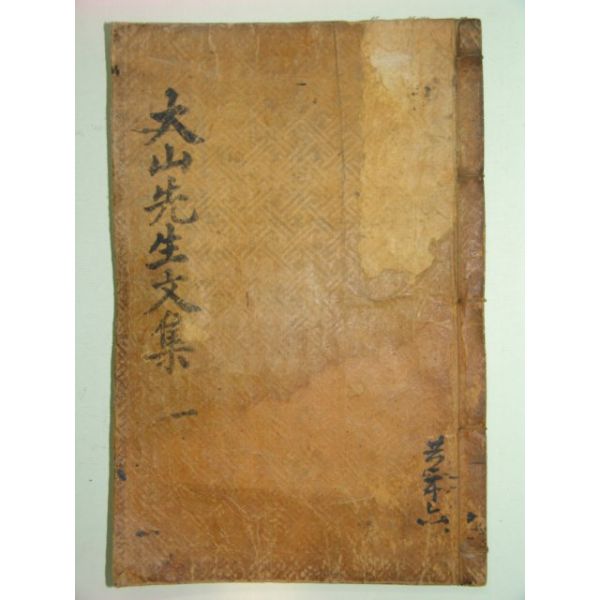 大山先生文集 一
共